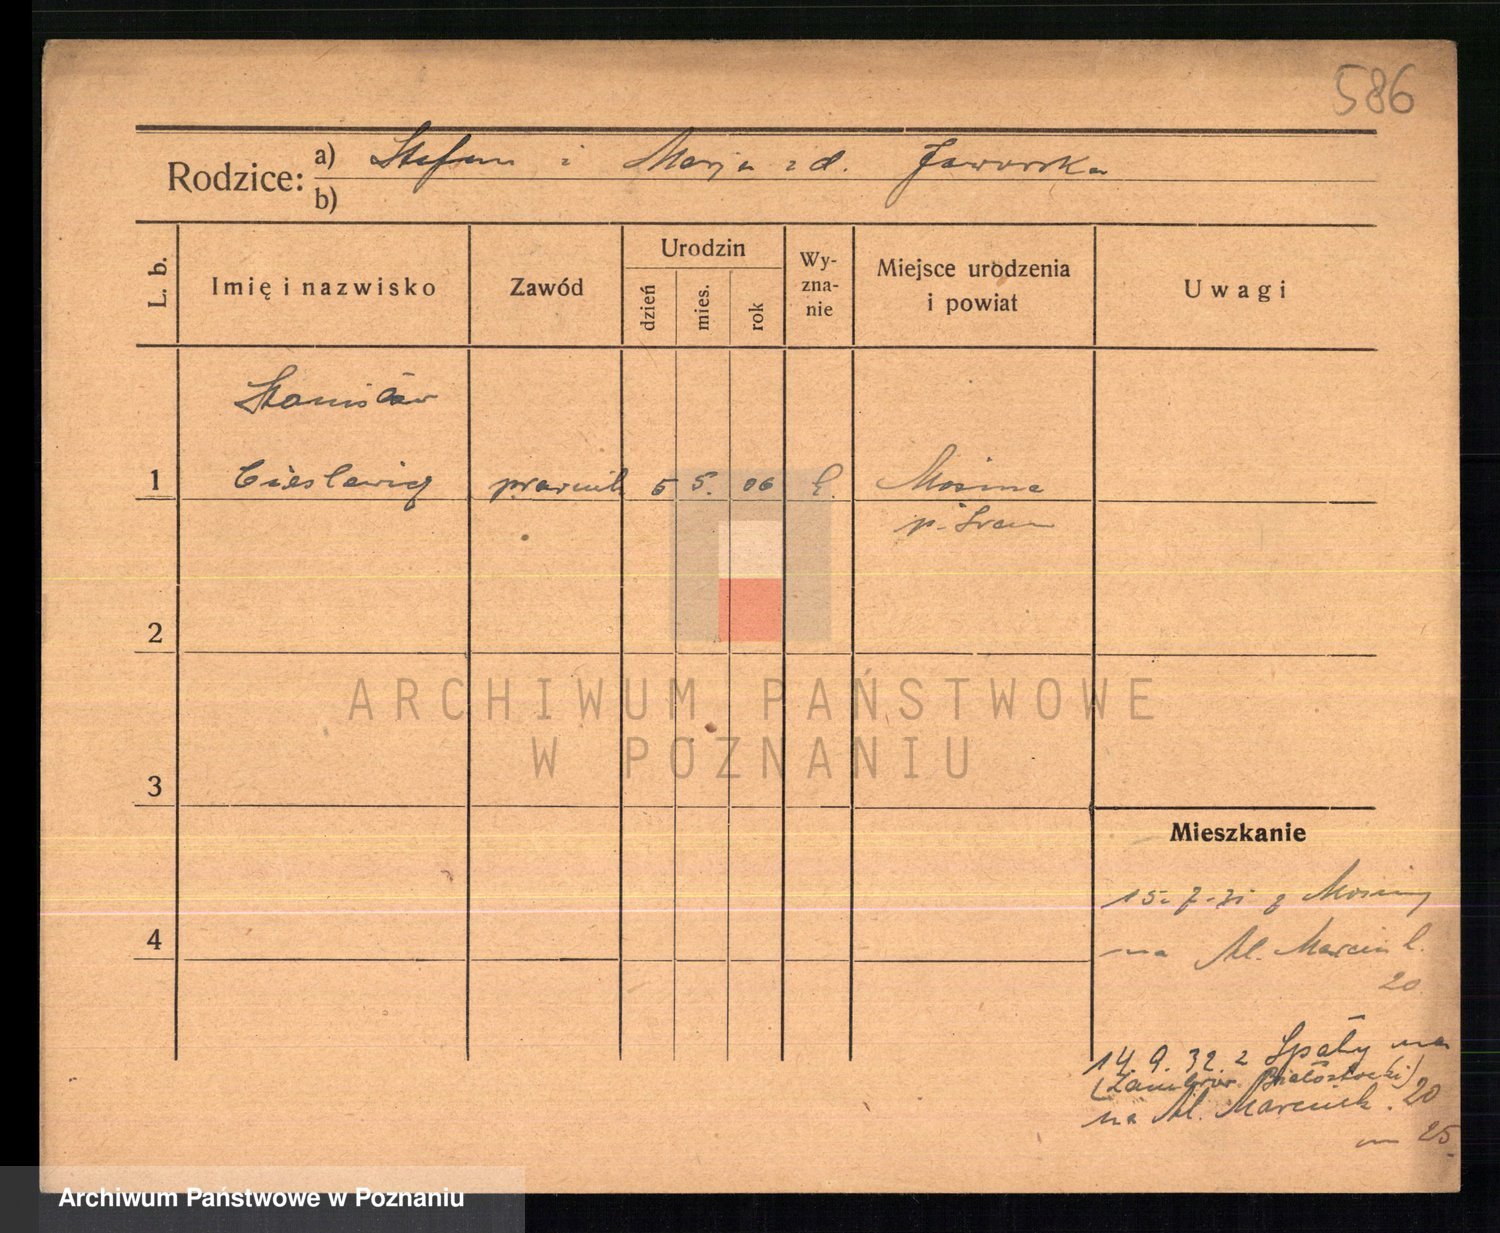 586
Rodzice: a) Stefan i Marja z d. Jaworska
b)
L. b.
Imię i nazwisko
Zawód
Urodzin
dzień
mies.
rok
Wy-
zna-
nie
Miejsce urodzenia
i powiat
Uwagi
Stanisław
1 Cieslewicz prawnik 5 5. 06 Mosina
p. Srem
2
ARCHIWUM PAŃSTWOWE
W POZNANIU
3
Mieszkanie
15. 7. 31 z Mosiny
4
na Al. Marcink.
20
14. 9. 32. z na
(Zambrow Białostocki)
na Al. Marcink. 20
m 25
Archiwum Państwowe w Poznaniu